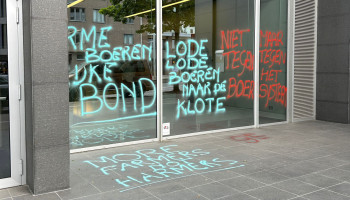 ARME
BOEREN
RIJKE
BOND
LODE
LODE
BOEREN
NAAR DE
KLOTE
NIET
TEGEN
BOER
MAAR
TEGEN
HET
SYSTEEM
MORE
FARMERS
LESS
HARMERS